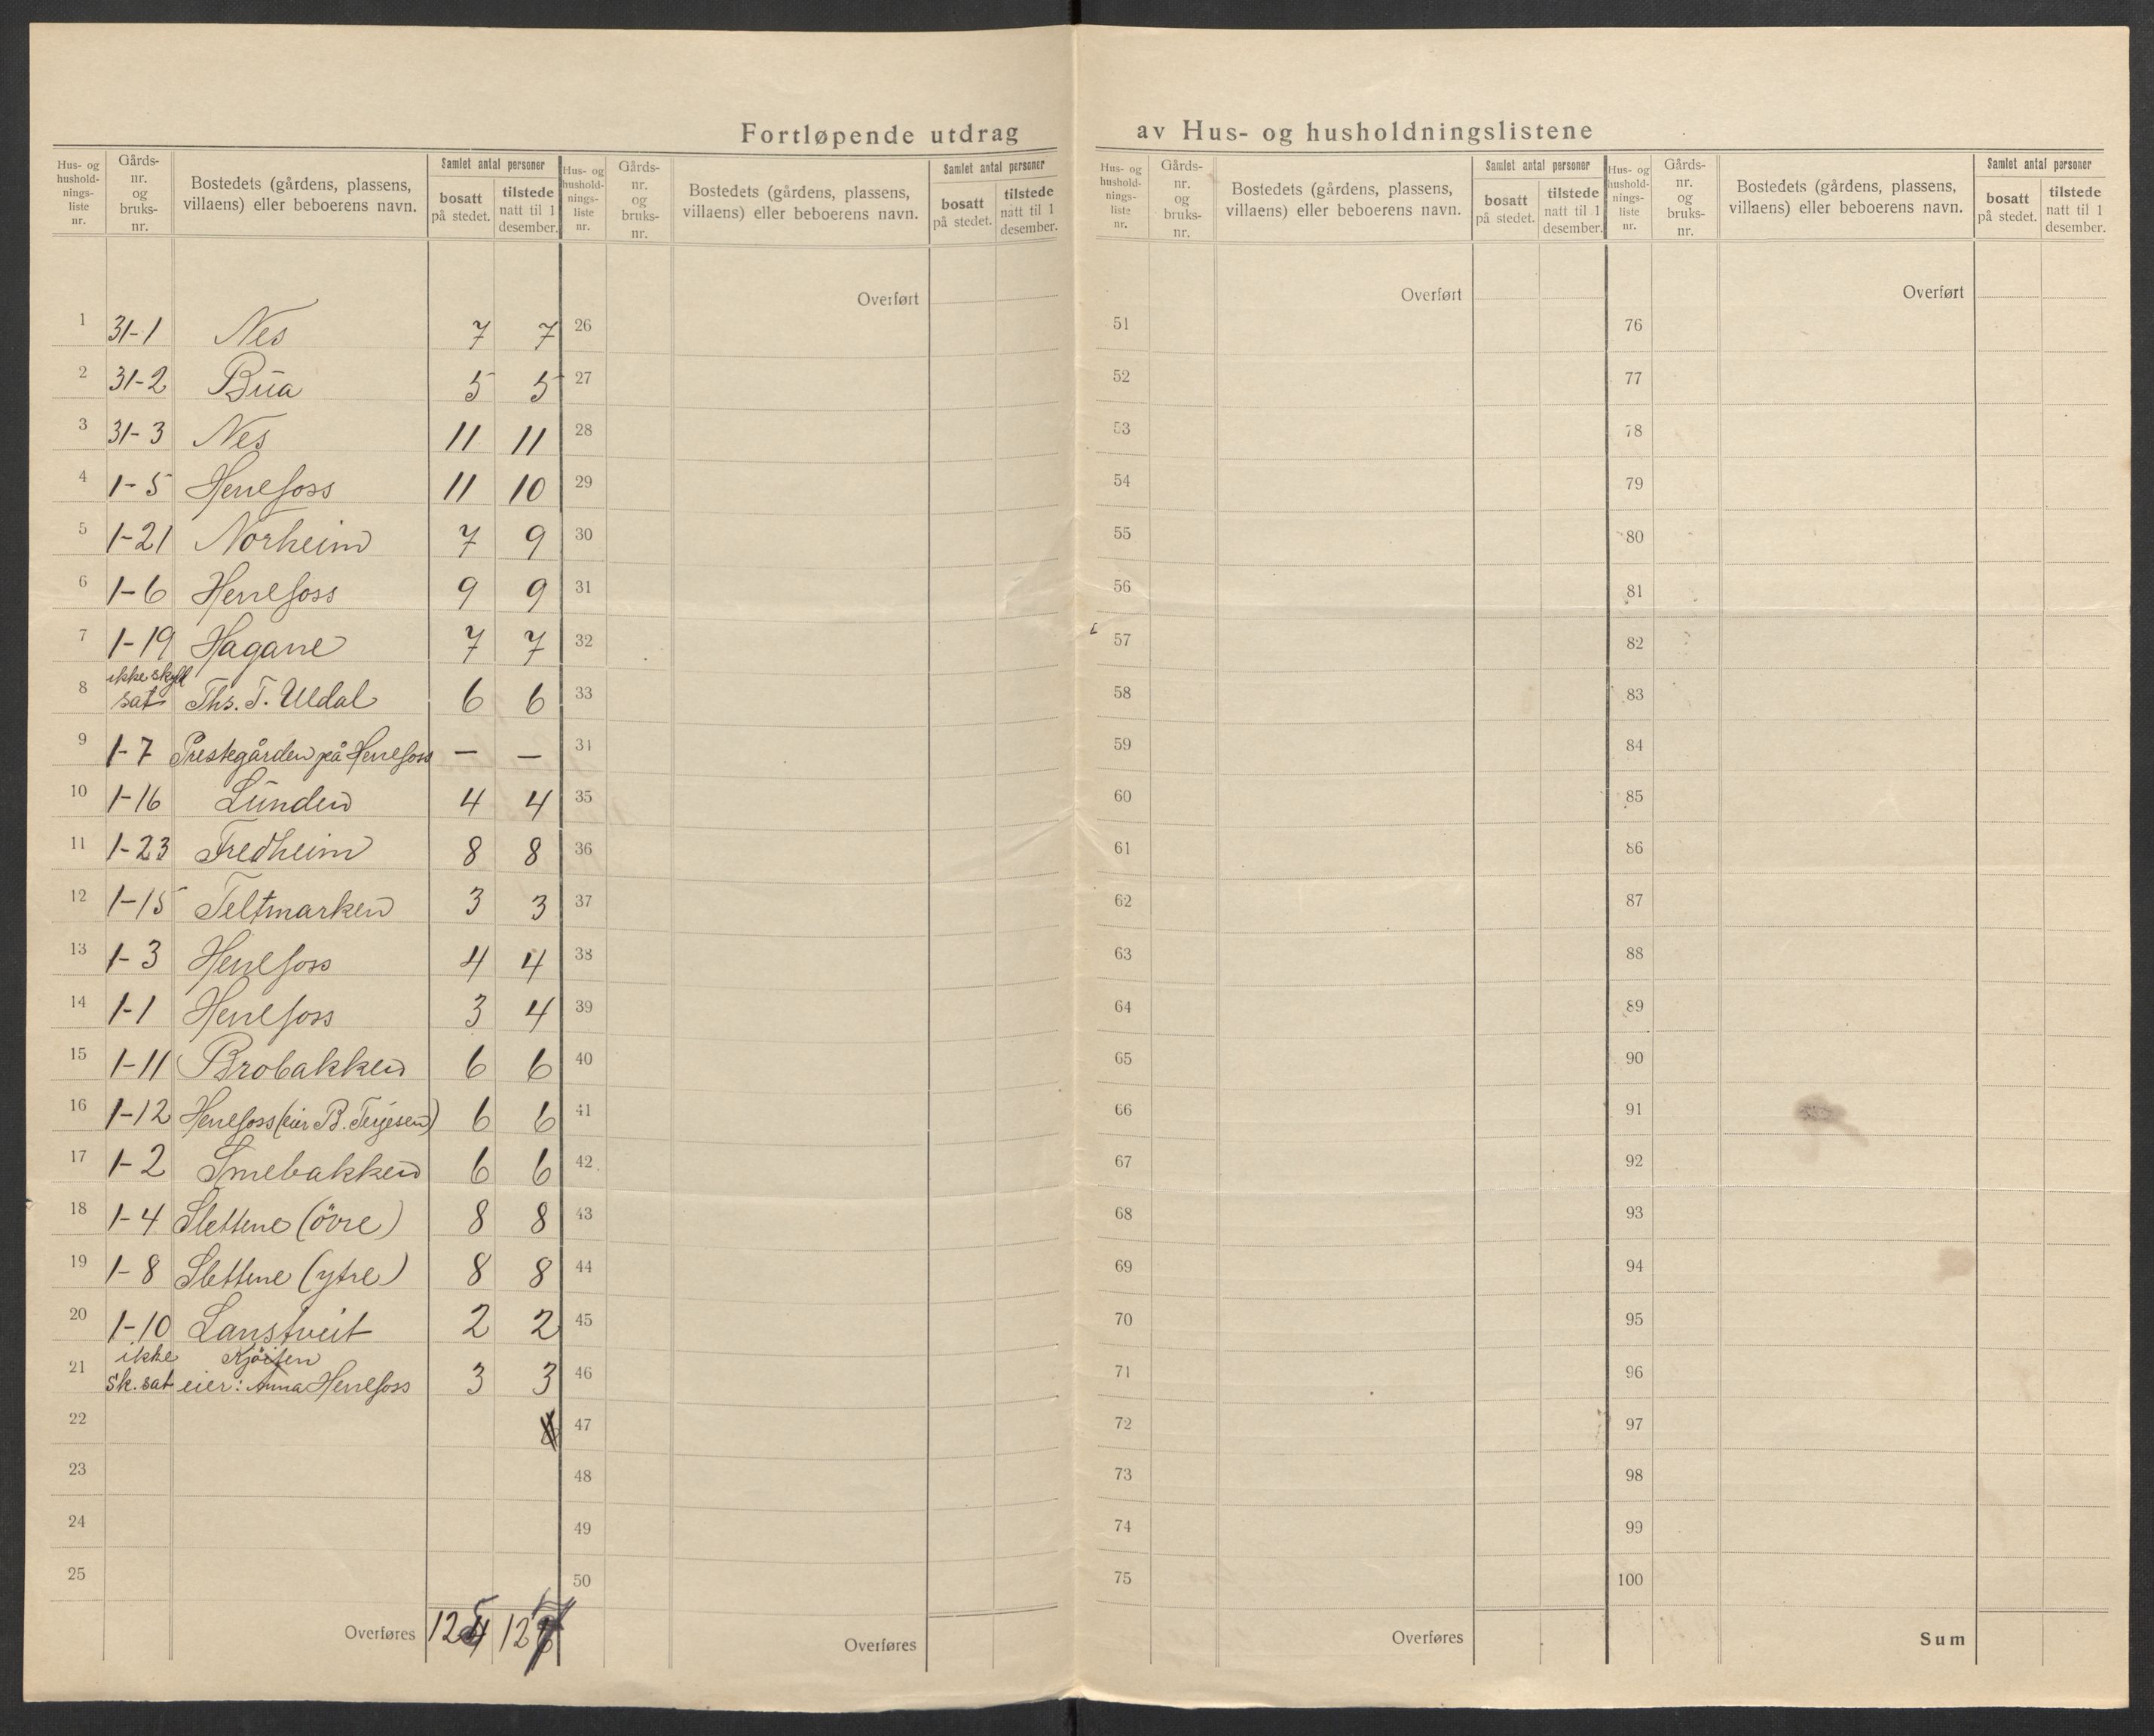 Fortløpende utdrag av Hus- og husholdningslistene
Hus- og hushold- nings- liste nr.
Gårds- nr. og bruks- nr.
Bostedets (gårdens, plassens, villaens) eller beboerens navn.
Samlet antal personer
bosatt på stedet.
tilstede natt til 1 desember.
Hus- og hushold- nings- liste nr.
Gårds- nr. og bruks- nr.
Bostedets (gårdens, plassens, villaens) eller beboerens navn.
Samlet antal personer
bosatt på stedet.
tilstede natt til 1 desember.
Hus- og hushold- nings- liste nr.
Gårds- nr. og bruks- nr.
Bostedets (gårdens, plassens, villaens) eller beboerens navn.
Samlet antal personer
bosatt på stedet.
tilstede natt til 1 desember.
Hus- og hushold- nings- liste nr.
Gårds- nr. og bruks- nr.
Bostedets (gårdens, plassens, villaens) eller beboerens navn.
Samlet antal personer
bosatt på stedet.
tilstede natt til 1 desember.
Overført Overført Overført
1 31-1 Nes 7 7 26 51 76
2 31-2 Bua 5 5 27 52 77
3 31-3 Nes 11 11 28 53 78
4 1-5 Herefoss 11 10 29 54 79
5 1-21 Norheim 7 9 30 55 80
6 1-6 Herefoss 9 9 31 56 81
7 1-19 Hagane 7 7 32 57 82
8 ikke skyld sat Ths. T. Uldal 6 6 33 58 83
9 1-7 Prestegården på Herefoss — — 34 59 84
10 1-16 Lunden 4 4 35 60 85
11 1-23 Fredheim 8 8 36 61 86
12 1-15 Teltmarken 3 3 37 62 87
13 1-3 Herefoss 4 4 38 63 88
14 1-1 Herefoss 3 4 39 64 89
15 1-11 Brobakken 6 6 40 65 90
16 1-12 Herefoss (eier B. Terjesen) 6 6 41 66 91
17 1-2 Smebakken 6 6 42 67 92
18 1-4 Slettene (övre) 8 8 43 68 93
19 1-8 Slettene (ytre) 8 8 44 69 94
20 1-10 Lanstveit 2 2 45 70 95
21 ikke sk. sat eier: Anna Herefoss 3 3 46 71 96
22 47 72 97
23 48 73 98
24 49 74 99
25 50 75 100
Overføres Overføres Overføres Sum